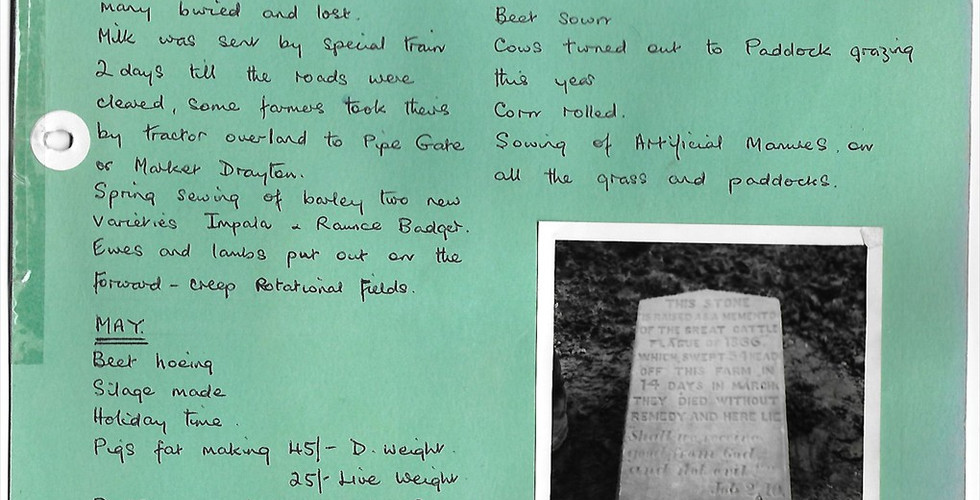 many buried and lost.
Milk was sent by special train
2 days till the roads were
cleared, some farmers took theirs
by tractor overland to Pipe Gate
or Market Drayton.
Spring sewing of barley two new
varieties Impala & Raunce Badger.
Ewes and lambs put out on the
forward - creep Rotational Fields.
MAY.
Beet hoeing
Silage made
Holiday time.
Pigs fat making 45/- D. weight.
25/- Live weight.
Beet Sown
Cows turned out to Paddock grazing
this year
Corn rolled.
Sowing of Artificial Manures, on
all the grass and paddocks.
THIS STONE
IS RAISED AS A MEMENTO
OF THE GREAT CATTLE
PLAGUE OF 1866.
WHICH SWEPT 54 HEAD
OFF THIS FARM IN
14 DAYS IN MARCH
THEY DIED WITHOUT
REMEDY AND HERE LIE
Shall we receive
good from God
and not
Job 2. 10